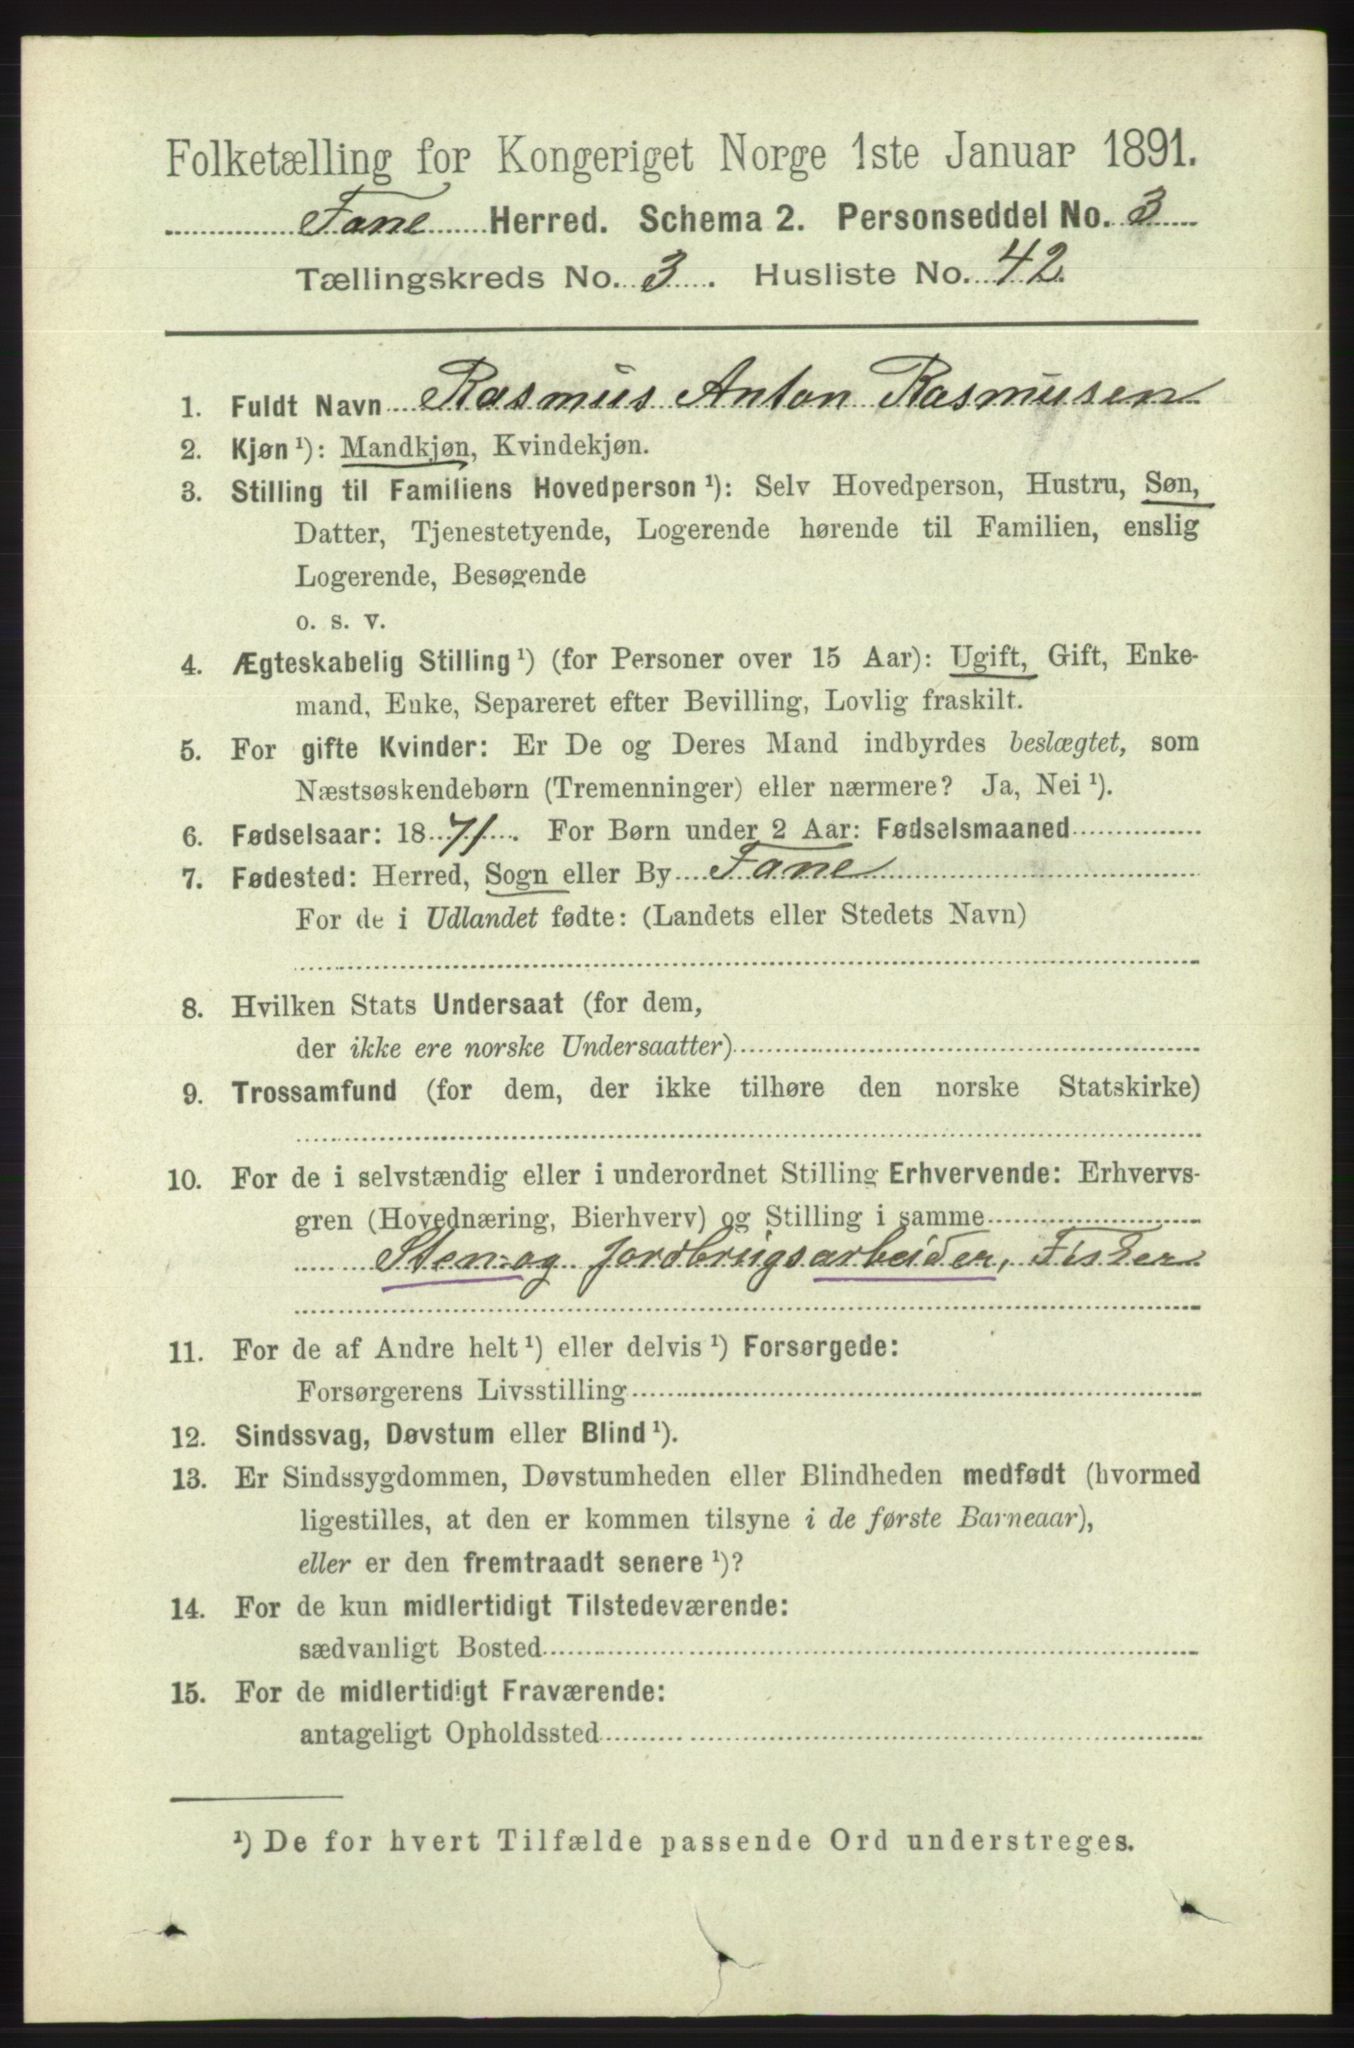 Folketælling for Kongeriget Norge 1ste Januar 1891.
Fane Herred. Schema 2. Personseddel No. 3
Tællingskreds No. 3. Husliste No. 42.
1. Fuldt Navn Rasmus Anton Rasmusen
2. Kjøn ¹): Mandkjøn, Kvindekjøn.
3. Stilling til Familiens Hovedperson ¹): Selv Hovedperson, Hustru, Søn,
Datter, Tjenestetyende, Logerende hørende til Familien, enslig
Logerende, Besøgende
o. s. v.
4. Ægteskabelig Stilling ¹) (for Personer over 15 Aar): Ugift, Gift, Enke-
mand, Enke, Separeret efter Bevilling, Lovlig fraskilt.
5. For gifte Kvinder: Er De og Deres Mand indbyrdes beslægtet, som
Næstsøskendebørn (Tremenninger) eller nærmere? Ja, Nei ¹).
6. Fødselsaar: 1871. For Børn under 2 Aar: Fødselsmaaned
7. Fødested: Herred, Sogn eller By Fane
For de i Udlandet fødte: (Landets eller Stedets Navn)
8. Hvilken Stats Undersaat (for dem,
der ikke ere norske Undersaatter)
9. Trossamfund (for dem, der ikke tilhøre den norske Statskirke)
10. For de i selvstændig eller i underordnet Stilling Erhvervende: Erhvervs-
gren (Hovednæring, Bierhverv) og Stilling i samme
Sten- og Jordbrugsarbeider, Fisker
11. For de af Andre helt ¹) eller delvis ¹) Forsørgede:
Forsørgerens Livsstilling
12. Sindssvag, Døvstum eller Blind ¹).
13. Er Sindssygdommen, Døvstumheden eller Blindheden medfødt (hvormed
ligestilles, at den er kommen tilsyne i de første Barneaar),
eller er den fremtraadt senere ¹)?
14. For de kun midlertidigt Tilstedeværende:
sædvanligt Bosted
15. For de midlertidigt Fraværende:
antageligt Opholdssted
¹) De for hvert Tilfælde passende Ord understreges.